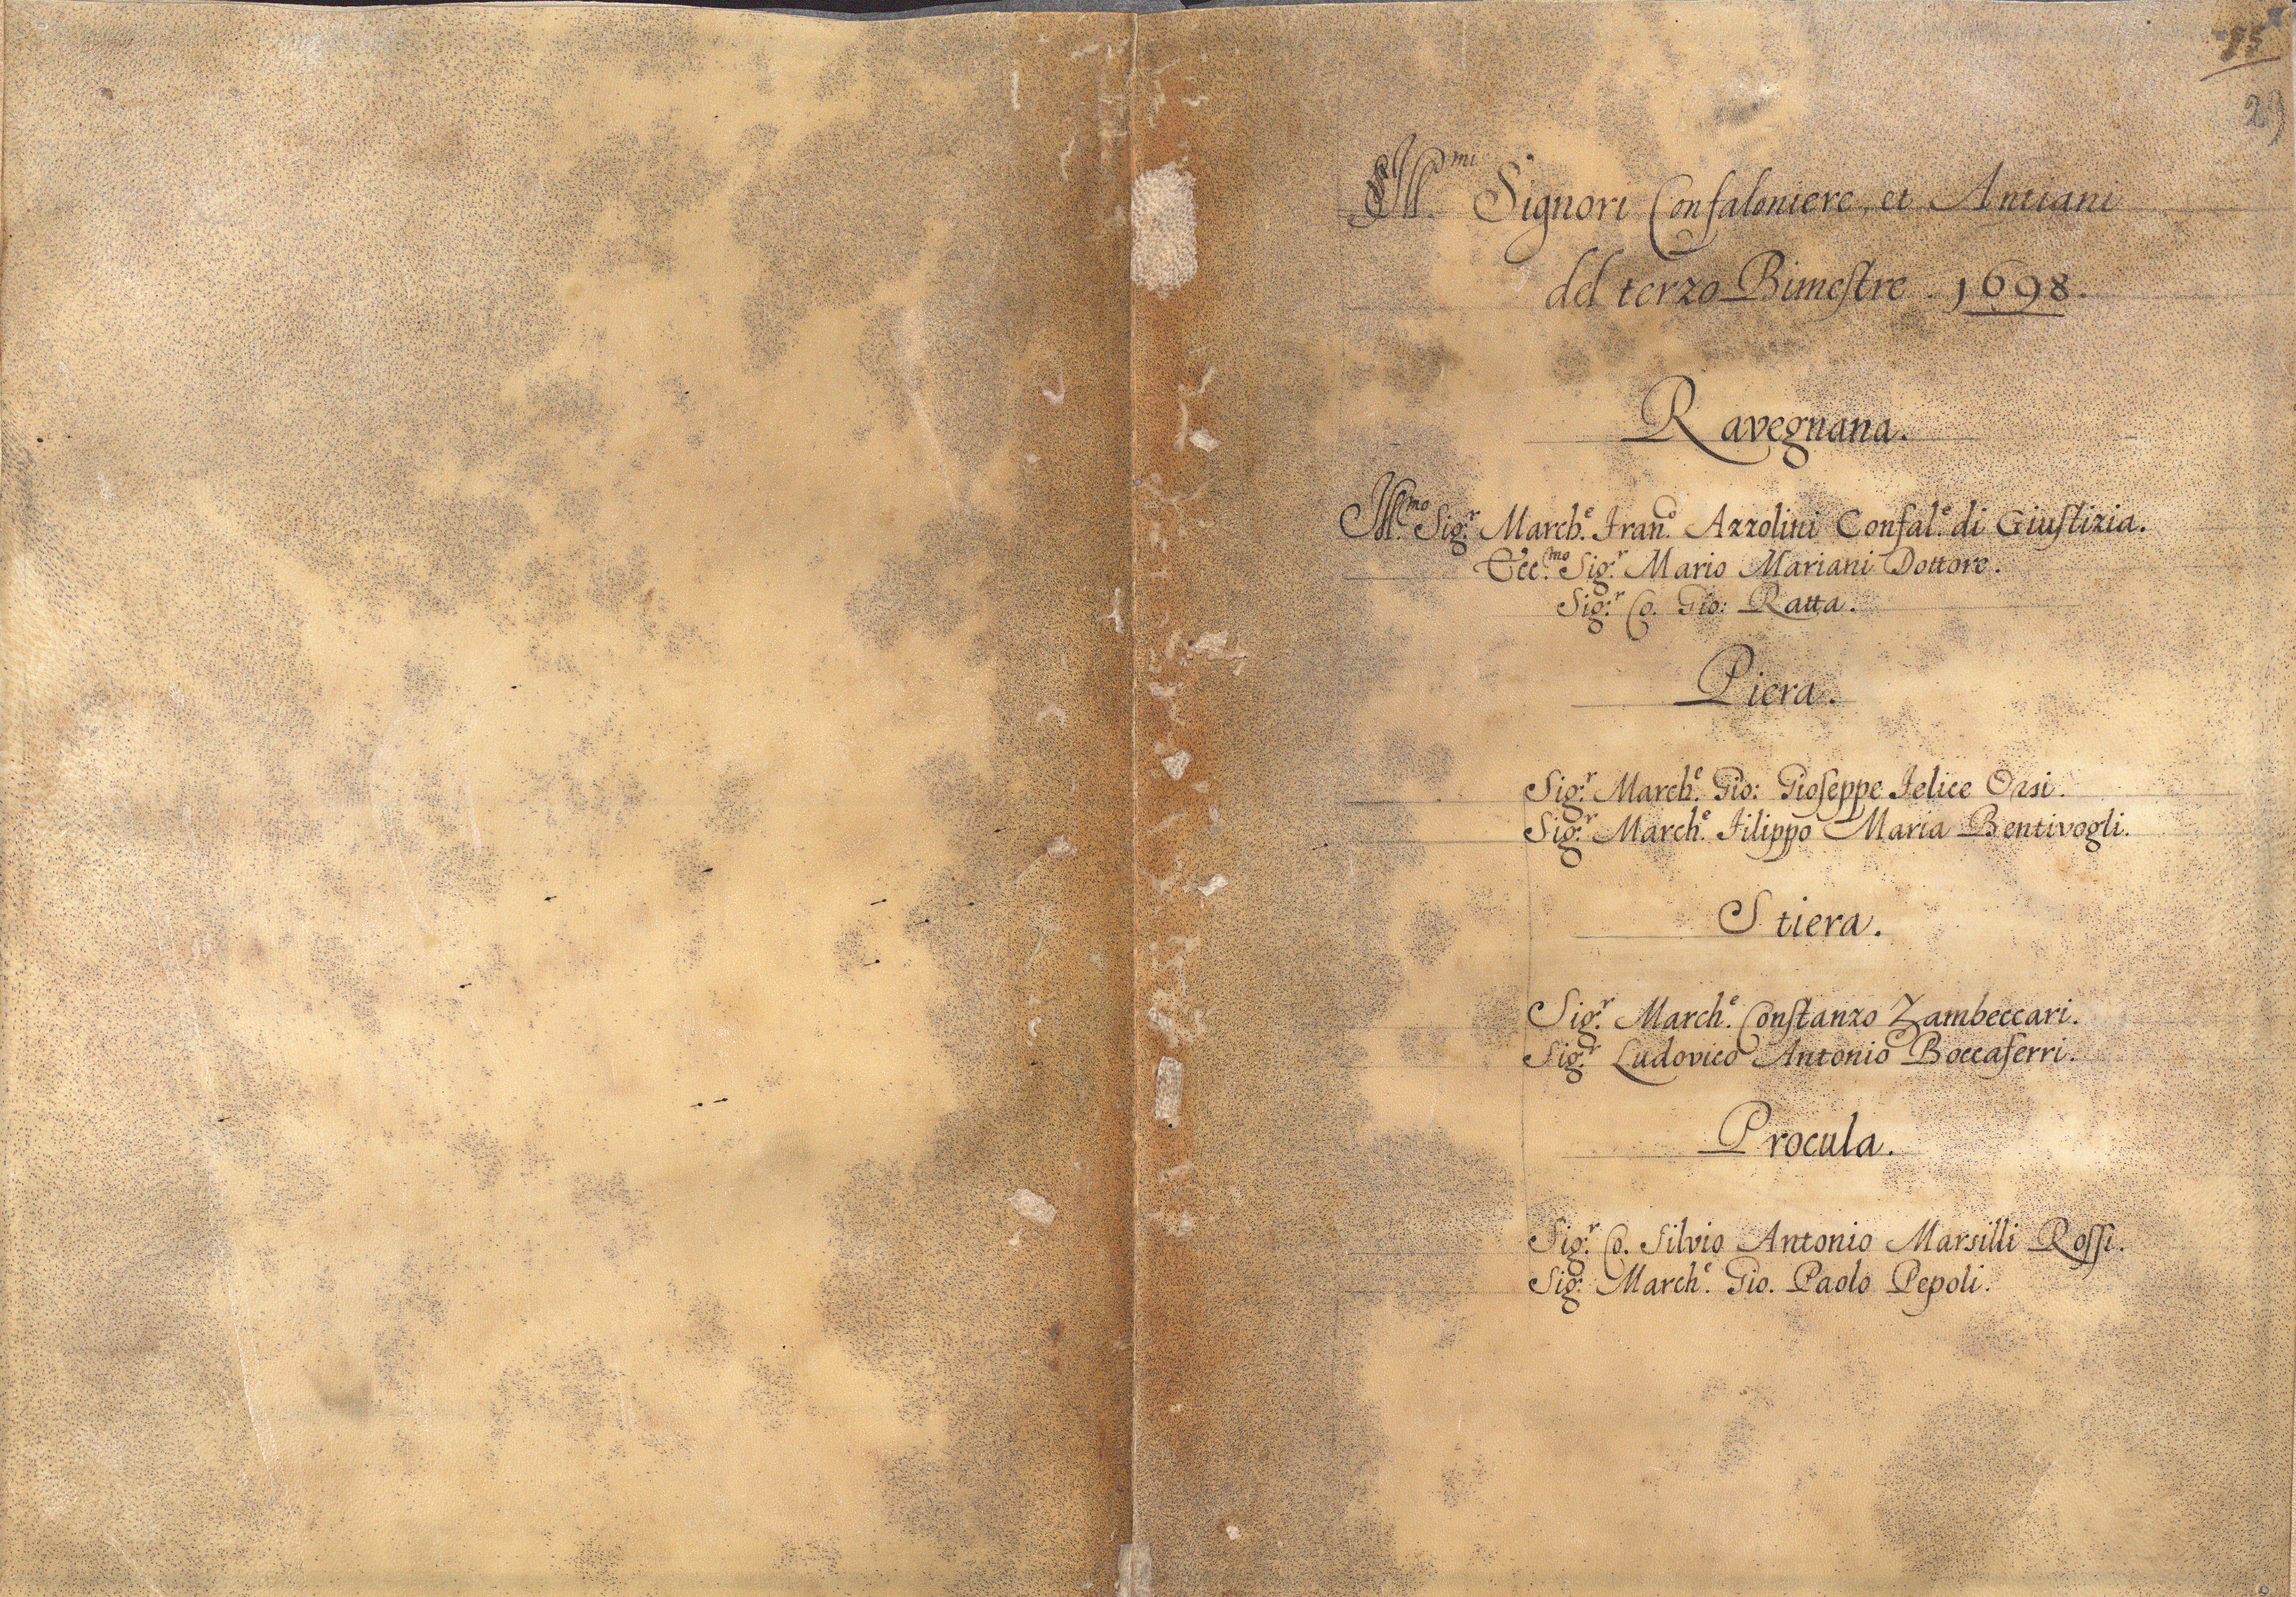 29
Ill.mi Signori Confaloniere, et Antiani
del terzo Bimestre. 1698.
Ravegnana.
Ill.mo Sig.r March.e Fran.co Azzolini Confal.e di Giustizia.
Ecc.mo Sig.r Mario Mariani Dottore.
Sig.r Co. Gio: Ratta.
Piera.
Sig.r March.e Gio: Gioseppe Felice Orsi.
Sig.r March.e Filippo Maria Bentivogli.
Stiera.
Sig.r March.e Constanzo Zambeccari.
Sig.r Ludovico Antonio Boccaferri.
Procula.
Sig.r Co. Silvio Antonio Marsilli Rossi.
Sig.r March.e Gio. Paolo Pepoli.